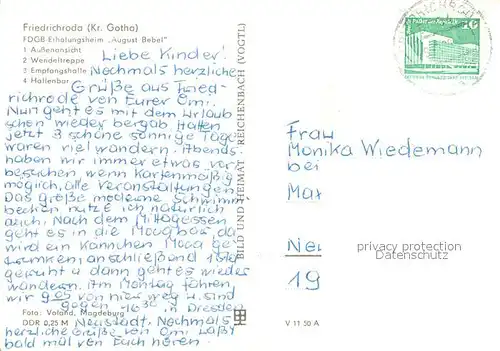 Friedrichroda (Kr. Gotha)
FDGB-Erholungsheim „August Bebel"
1 Außenansicht
2 Wendeltreppe
3 Empfangshalle
4 Hallenbar
Liebe Kinder!
Nochmals herzliche
Grüße aus Fried-
richrode von Eurer Omi.
Nun geht es mit dem Urlaub
schon wieder bergab. Hatten
jetzt 3 schöne sonnige Tage
waren viel wandern. Abends
haben wir immer etwas vor
besuchen, wenn kartenmäßig
möglich, alle Veranstaltungen
Das große moderne Schwimm
becken nutze ich natürlich
auch. Nach dem Mittagessen
geht es in die Moccabar, da
wird ein Kännchen Mocca ge-
trunken, anschließend 1 Std
geruht u dann geht es wieder
wandern. Am Montag fahren
wir 9 von hier weg u. sind
gegen 16 30 in Dresden
Neustadt. Nochmals
herzliche Grüße von Omi. Laßt
bald mal von Euch hören.
Foto: Voland, Magdeburg
DDR 0,25 M
BILD UND HEIMAT REICHENBACH (VOGTL)
Frau
Monika Wiedemann
bei
Max
Nei
19
privacy protection
Datenschutz
V 11 50 A
10